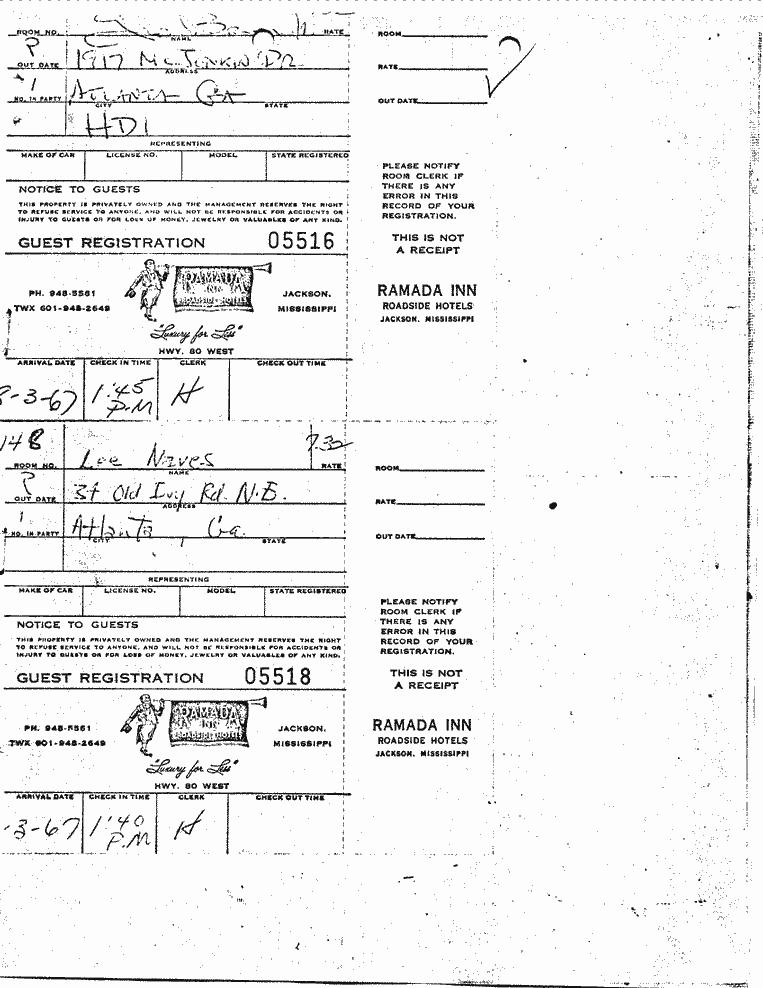 ROOM NO. NAME RATE
OUT DATE 1917 Mc Jenkin Dr.
ADDRESS
1
NO. IN PARTY Atlanta Ga
CITY STATE
HDI
REPRESENTING
MAKE OF CAR LICENSE NO. MODEL STATE REGISTERED
NOTICE TO GUESTS
THIS PROPERTY IS PRIVATELY OWNED AND THE MANAGEMENT RESERVES THE RIGHT
TO REFUSE SERVICE TO ANYONE, AND WILL NOT BE RESPONSIBLE FOR ACCIDENTS OR
INJURY TO GUESTS OR FOR LOSS OF MONEY, JEWELRY OR VALUABLES OF ANY KIND.
GUEST REGISTRATION 05516
PH. 948-5561
TWX 601-948-2649
RAMADA
INN
ROADSIDE HOTELS
JACKSON,
MISSISSIPPI
"Luxury for Less"
HWY. 80 WEST
ARRIVAL DATE CHECK IN TIME CLERK CHECK OUT TIME
8-3-67 1:45 P.M H
ROOM
RATE
OUT DATE
PLEASE NOTIFY
ROOM CLERK IF
THERE IS ANY
ERROR IN THIS
RECORD OF YOUR
REGISTRATION.
THIS IS NOT
A RECEIPT
RAMADA INN
ROADSIDE HOTELS
JACKSON, MISSISSIPPI
148 Lee Naves 7.32
ROOM NO. NAME RATE
OUT DATE 34 Old Ivy Rd. N.E.
ADDRESS
1
NO. IN PARTY Atlanta, Ga.
CITY STATE
REPRESENTING
MAKE OF CAR LICENSE NO. MODEL STATE REGISTERED
NOTICE TO GUESTS
THIS PROPERTY IS PRIVATELY OWNED AND THE MANAGEMENT RESERVES THE RIGHT
TO REFUSE SERVICE TO ANYONE, AND WILL NOT BE RESPONSIBLE FOR ACCIDENTS OR
INJURY TO GUESTS OR FOR LOSS OF MONEY, JEWELRY OR VALUABLES OF ANY KIND.
GUEST REGISTRATION 05518
PH. 948-5561
TWX 601-948-2649
RAMADA
INN
ROADSIDE HOTELS
JACKSON,
MISSISSIPPI
"Luxury for Less"
HWY. 80 WEST
ARRIVAL DATE CHECK IN TIME CLERK CHECK OUT TIME
-3-67 1:40 P.M H
ROOM
RATE
OUT DATE
PLEASE NOTIFY
ROOM CLERK IF
THERE IS ANY
ERROR IN THIS
RECORD OF YOUR
REGISTRATION.
THIS IS NOT
A RECEIPT
RAMADA INN
ROADSIDE HOTELS
JACKSON, MISSISSIPPI